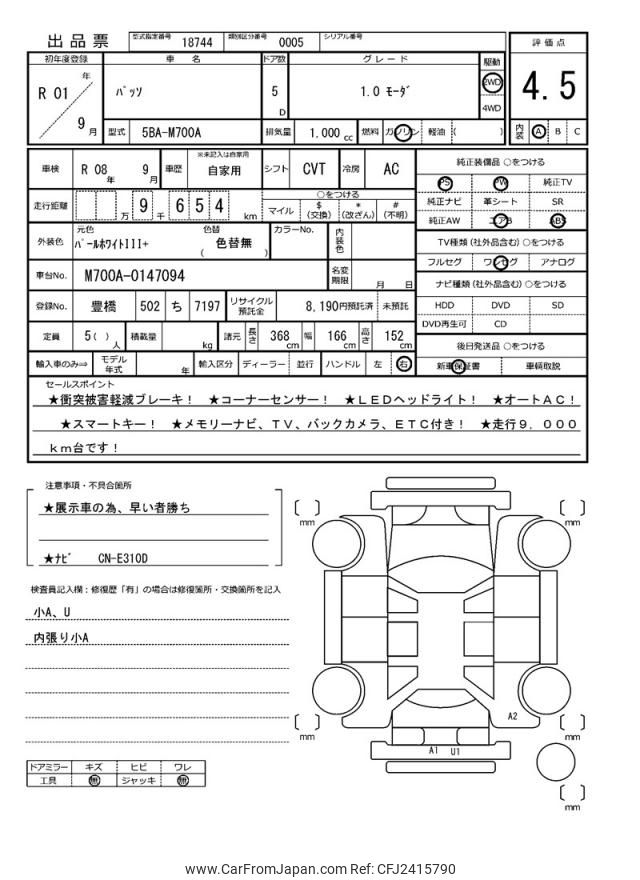 出品票
型式指定番号 18744 類別区分番号 0005 シリアル番号
初年度登録 車名 ドア数 グレード 駆動 評価点
R 01 年 9 月 パッソ 5 D 1.0 モーダ 2WD 4WD 4.5
型式 5BA-M700A 排気量 1.000 cc 燃料 ガソリン 軽油 ( ) 内装 A B C
車検 R 08 年 9 月 車歴 ※未記入は自家用 自家用 シフト CVT 冷房 AC
走行距離 万 9 千 6 5 4 km
○をつける
マイル $ (交換) * (改ざん) # (不明)
外装色 元色 パールホワイトIII+ 色替 色替無 ( ) カラーNo. 内装色
車台No. M700A-0147094 名変期限 月 日
登録No. 豊橋 502 ち 7197 リサイクル預託金 8,190円預託済 未預託
定員 5( ) 人 積載量 kg 諸元 長さ 368 cm 幅 166 cm 高さ 152 cm
輸入車のみ⇨ モデル年式 年 輸入区分 ディーラー 並行 ハンドル 左 右
純正装備品 ○をつける
PS PW 純正TV
純正ナビ 革シート SR
純正AW エアB ABS
TV種類(社外品含む)○をつける
フルセグ ワンセグ アナログ
ナビ種類(社外品含む)○をつける
HDD DVD SD
DVD再生可 CD
後日発送品 ○をつける
新車保証書 車輌取説
セールスポイント
★衝突被害軽減ブレーキ! ★コーナーセンサー! ★LEDヘッドライト! ★オートAC!
★スマートキー! ★メモリーナビ、TV、バックカメラ、ETC付き! ★走行9.000
km台です!
注意事項・不具合箇所
★展示車の為、早い者勝ち
★ナビ CN-E310D
検査員記入欄:修復歴「有」の場合は修復箇所・交換箇所を記入
小A、U
内張り小A
ドアミラー キズ ヒビ ワレ
工具 無 ジャッキ 無
mm
mm
A2
mm
mm
A1 U1
mm
www.CarFromJapan.com Ref: CFJ2415790